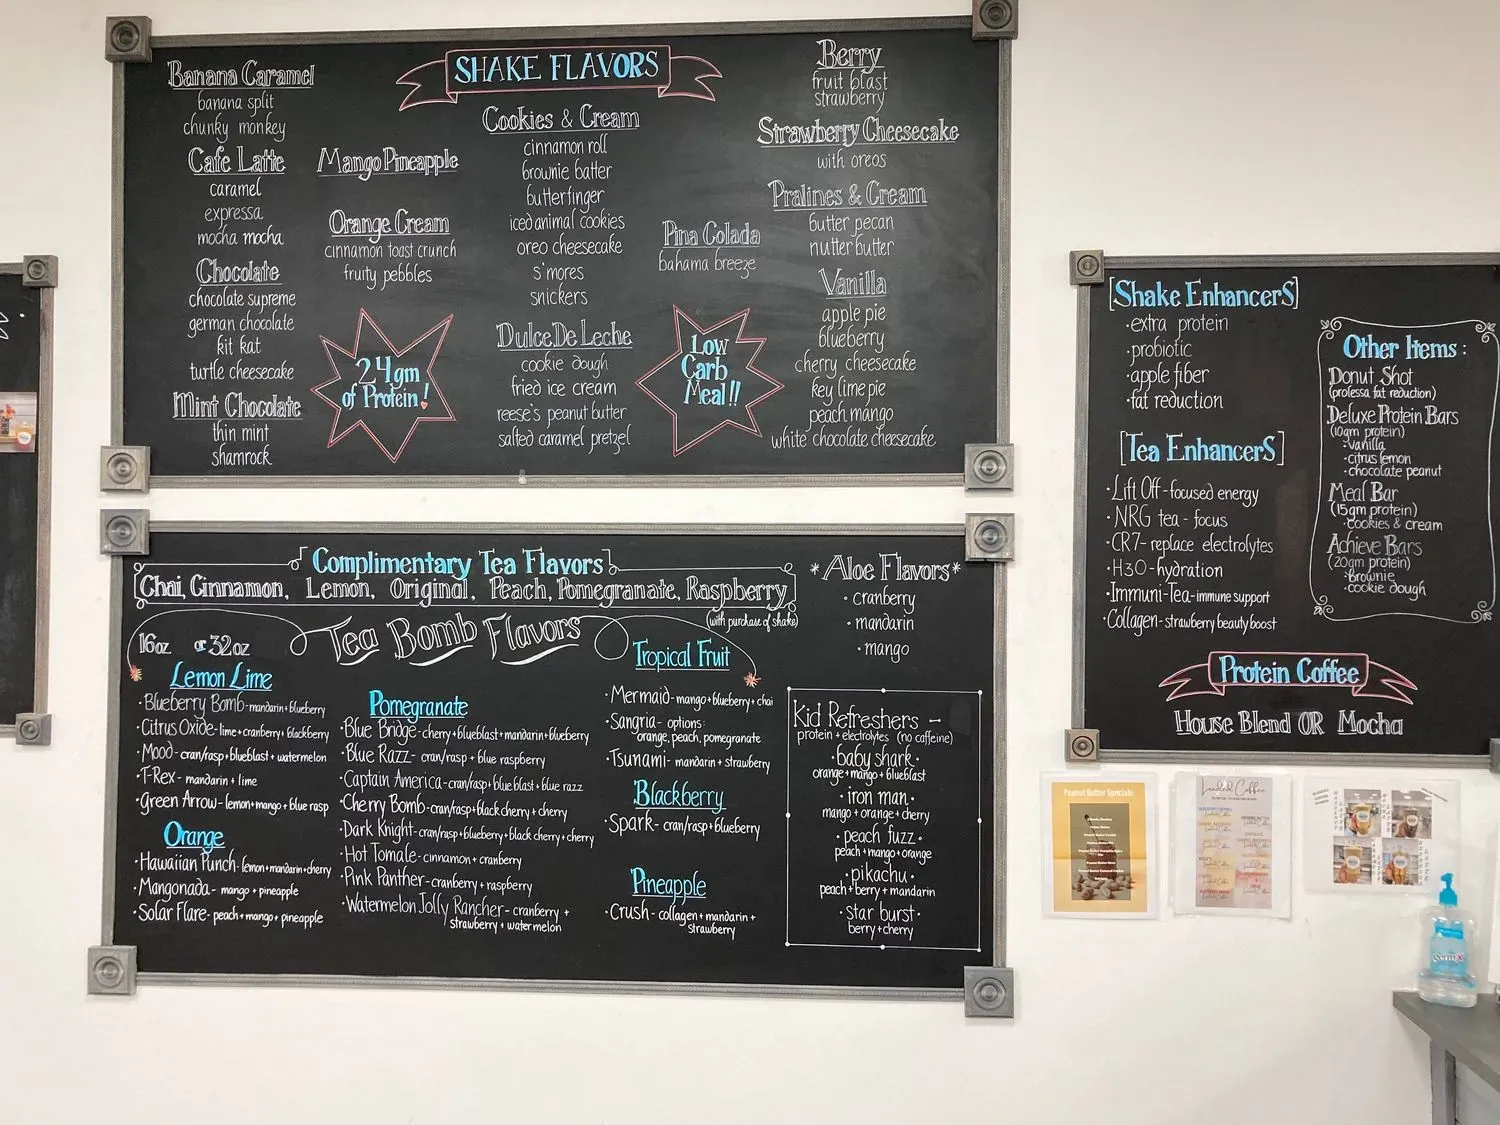 SHAKE FLAVORS
Banana Caramel
banana split
chunky monkey
Cafe Latte
caramel
expressa
mocha mocha
Chocolate
chocolate supreme
german chocolate
kit kat
turtle cheesecake
Mint Chocolate
thin mint
shamrock
Mango Pineapple
Orange Cream
cinnamon toast crunch
fruity pebbles
24gm
of Protein!
Cookies & Cream
cinnamon roll
brownie batter
butterfinger
iced animal cookies
oreo cheesecake
s'mores
snickers
Dulce De Leche
cookie dough
fried ice cream
reese's peanut butter
salted caramel pretzel
Pina Colada
bahama breeze
Low
Carb
Meal!!
Berry
fruit blast
strawberry
Strawberry Cheesecake
with oreos
Pralines & Cream
butter pecan
nutter butter
Vanilla
apple pie
blueberry
cherry cheesecake
key lime pie
peach mango
white chocolate cheesecake
Complimentary Tea Flavors
Chai, Cinnamon, Lemon, Original, Peach, Pomegranate, Raspberry
(with purchase of shake)
16oz or 32oz
Tea Bomb Flavors
Lemon Lime
·Blueberry Bomb-mandarin+blueberry
·Citrus Oxide-lime+cranberry+blackberry
·Mood-cran/rasp+blueblast+watermelon
·T-Rex- mandarin + lime
·Green Arrow-lemon+mango+blue rasp
Orange
·Hawaiian Punch-lemon+mandarin+cherry
·Mangonada- mango + pineapple
·Solar Flare- peach+mango+pineapple
Pomegranate
·Blue Bridge-cherry+blueblast+mandarin+blueberry
·Blue Razz- cran/rasp + blue raspberry
·Captain America-cran/rasp+blueblast+blue razz
·Cherry Bomb-cran/rasp+black cherry+cherry
·Dark Knight-cran/rasp+blueberry+black cherry+cherry
·Hot Tomale-cinnamon+cranberry
·Pink Panther-cranberry+raspberry
·Watermelon Jolly Rancher- cranberry +
strawberry + watermelon
Tropical Fruit
·Mermaid-mango+blueberry+chai
·Sangria- options:
orange, peach, pomegranate
·Tsunami- mandarin + strawberry
Blackberry
·Spark- cran/rasp+blueberry
Pineapple
·Crush- collagen+mandarin+
strawberry
*Aloe Flavors*
· cranberry
· mandarin
· mango
Kid Refreshers -
protein + electrolytes (no caffeine)
·baby shark·
orange+mango+blueblast
·iron man·
mango+orange+cherry
·peach fuzz·
peach+mango+orange
·pikachu·
peach+berry+mandarin
·star burst·
berry+cherry
[Shake EnhancerS]
·extra protein
·probiotic
·apple fiber
·fat reduction
[Tea EnhancerS]
·Lift Off-focused energy
·NRG tea- focus
·CR7-replace electrolytes
·H3O-hydration
·Immuni-Tea-immune support
·Collagen-strawberry beauty boost
Other Items:
Donut Shot
(professa fat reduction)
Deluxe Protein Bars
(10gm protein)
·vanilla
·citrus lemon
·chocolate peanut
Meal Bar
(15gm protein)
·cookies & cream
Achieve Bars
(20gm protein)
·brownie
·cookie dough
Protein Coffee
House Blend OR Mocha
Peanut Butter Specials
Loaded Coffee